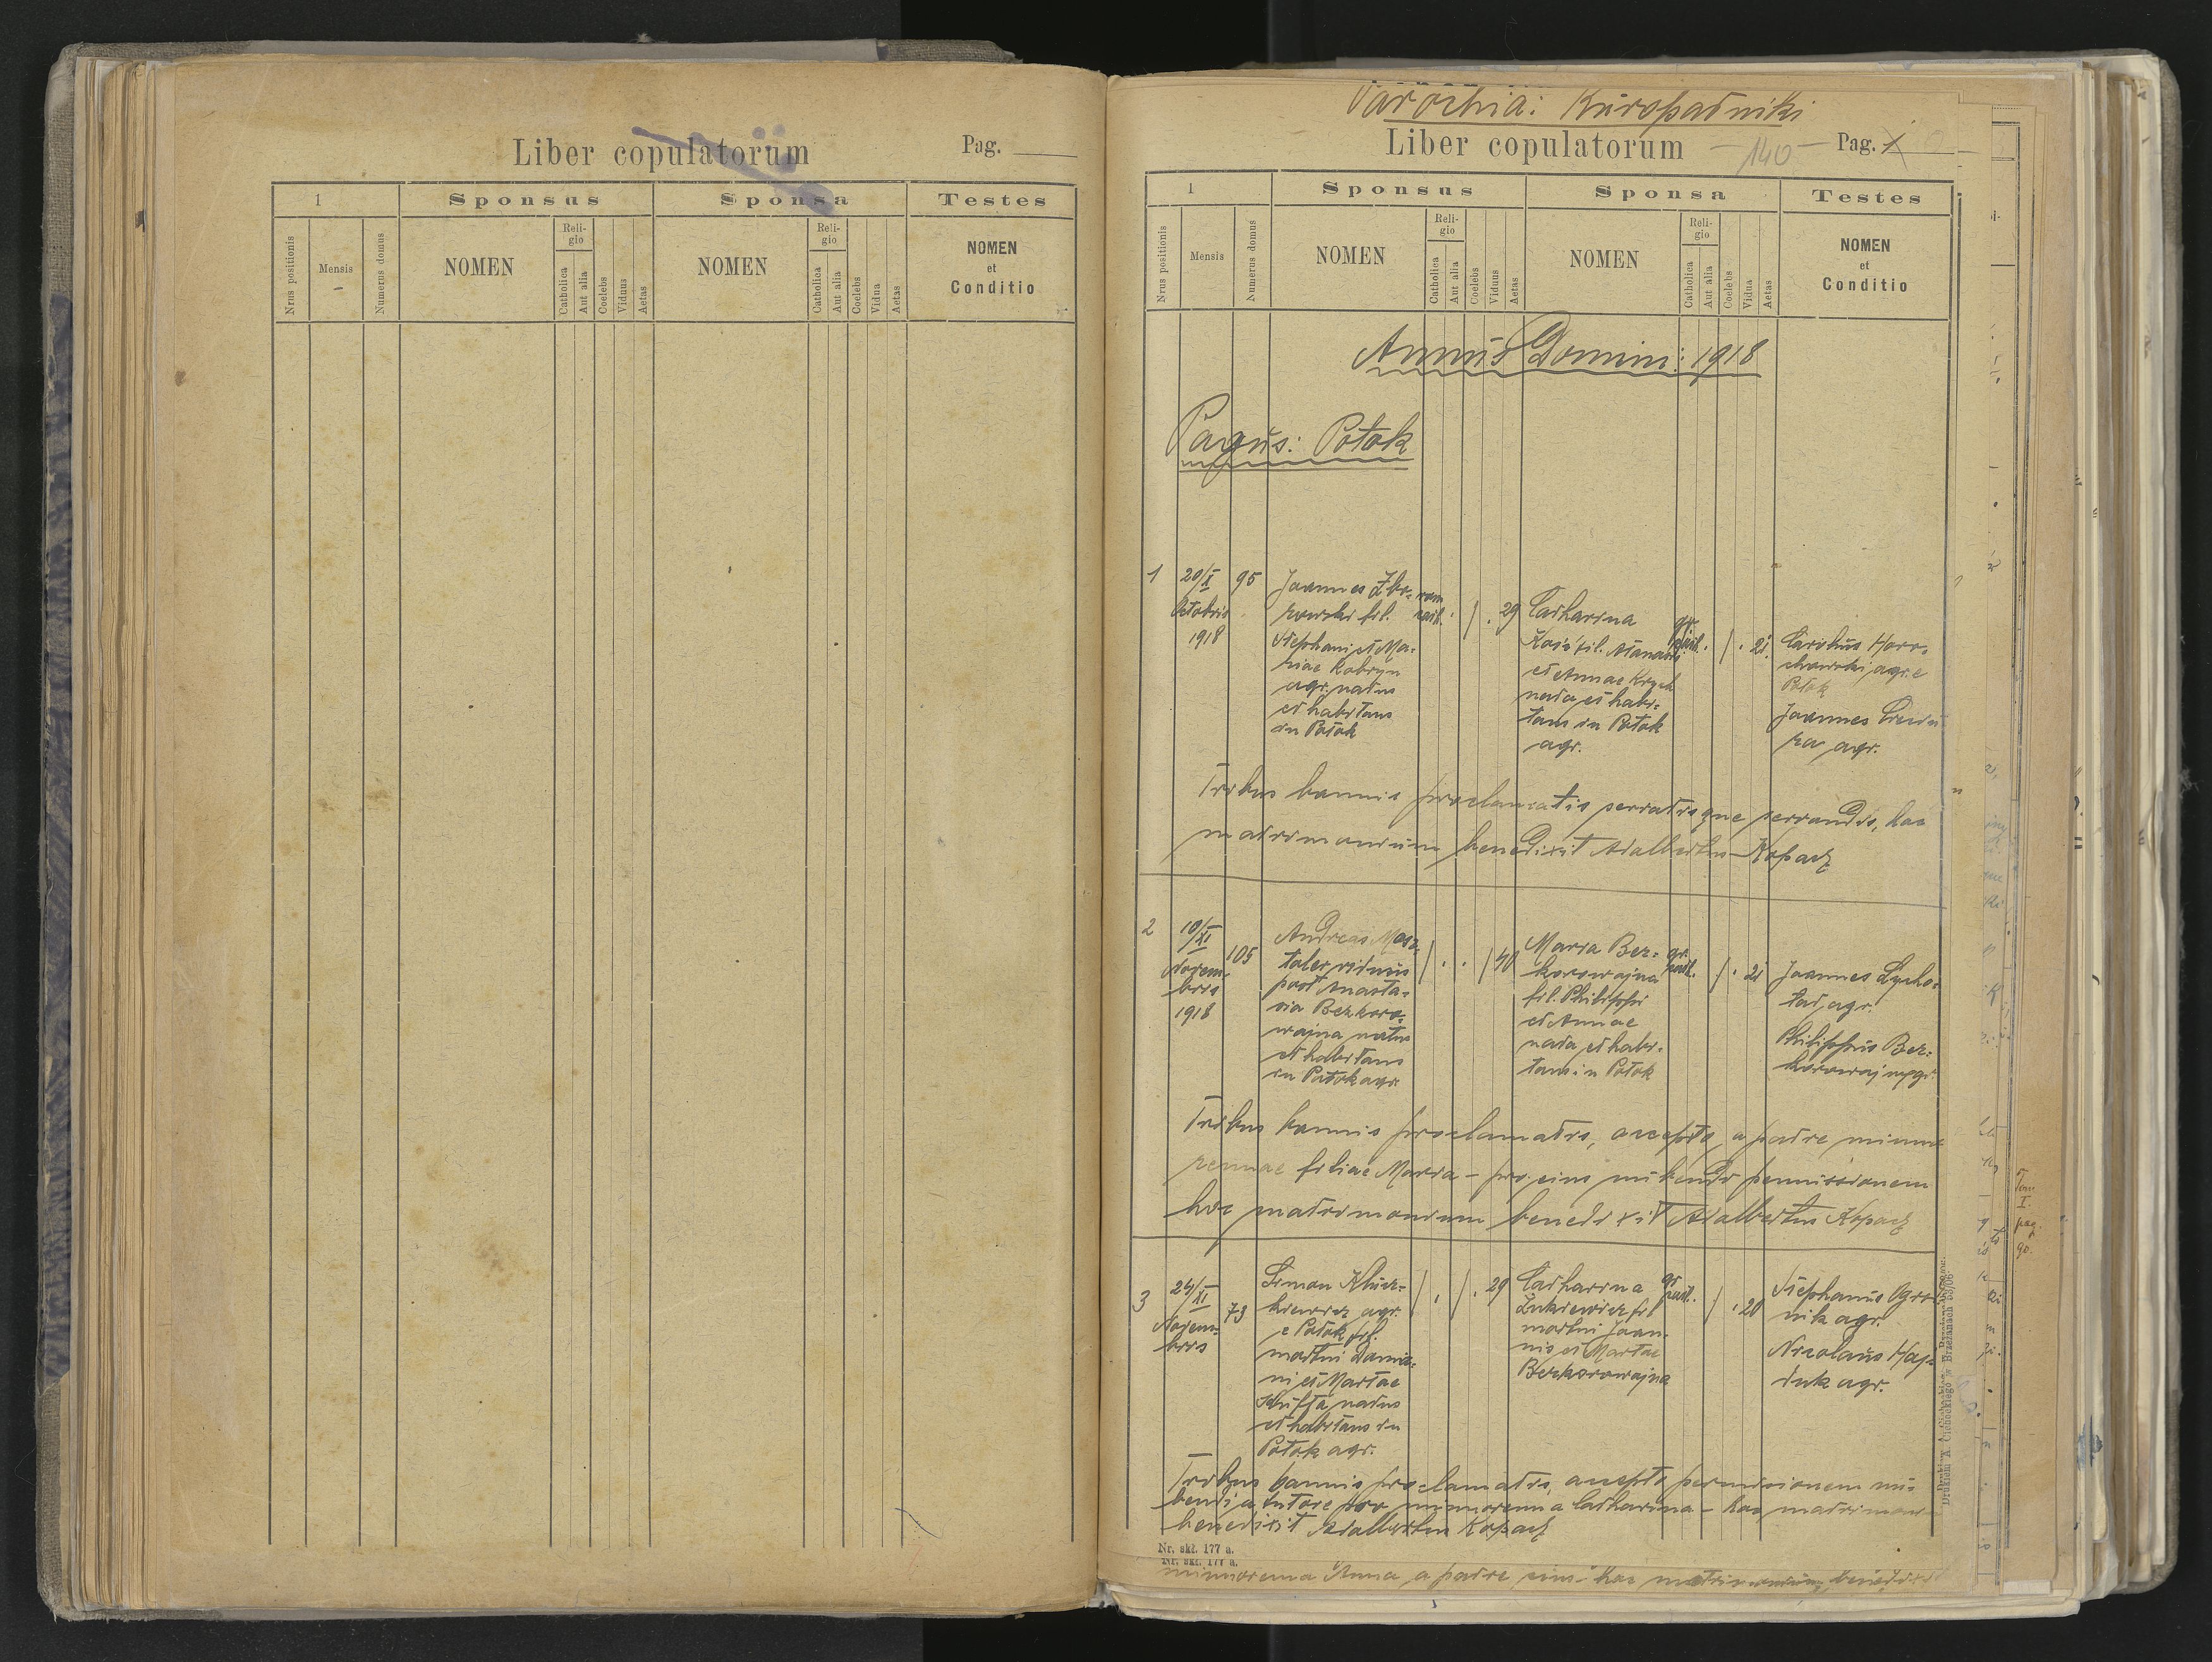 Liber copulatorum
Pag.
1
Sponsus
Sponsa
Testes
Nrus positionis
Mensis
Numerus domus
NOMEN
Religio
Catholica
Aut alia
Coelebs
Viduus
Aetas
NOMEN
Religio
Catholica
Aut alia
Coelebs
Vidua
Aetas
NOMEN
et
Conditio
Parochia: Kuropatniki
Liber copulatorum
— 140 —
Pag.
1
Sponsus
Sponsa
Testes
Nrus positionis
Mensis
Numerus domus
NOMEN
Reli-
gio
Catholica
Aut alia
Coelebs
Viduus
Aetas
NOMEN
Reli-
gio
Catholica
Aut alia
Coelebs
Vidua
Aetas
NOMEN
et
Conditio
Annus Domini: 1918
Pagus: Potok
1
20/X
Octobris
1918
95
Joannes Zbo-
rowski fil.
Stephani et Ma-
riae Kobryn
agr. natus
et habitans
in Potok
rom
cath.
29
Catharina
Koś fil. Atanasii
et Annae Krych
nata et habi-
tans in Potok
agr.
gr.
cath.
21
Carolus Horo-
chowski agr. e
Potok
Joannes
agr.
Tribus bannis proclamatis servatisque servandis, hoc
matrimonium benedixit Adalbertus Kopacz
2
10/XI
Novem-
bris
1918
105
Andreas Masz-
taler viduus
post Anasta-
sia Bezkoro-
wajna natus
et habitans
in Potok agr.
40
Maria Bez-
korowajna
fil. Philippi
et Annae
nata et habi-
tans in Potok
gr.
cath.
21
Joannes Lycho-
tar agr.
Philippus Bez-
korowajny agr.
Tribus bannis proclamatis, accepto a patre minno-
rennae filiae Maria - pro eius nubendi permissionem
hoc matrimonium benedixit Adalbertus Kopacz
3
24/XI
Novem-
bris
73
Simon Klucz-
kiewicz agr.
e Potok fil.
mortui Damia-
ni et Martae
natus
et habitans in
Potok agr.
29
Catharina
Łukiewicz fil
mortui Joan-
nis et Martae
Bezkorowajna
gr
cath.
20
Stephanus Ogrod
nik agr.
Nicolaus Haj-
duk agr.
Tribus bannis proclamatis, accepto permissionem nu-
bendi a tutore pro minnorenna Catharina - hoc matrimon
benedixit Adalbertus Kopacz
Nr. skł. 177 a.
Nr. skł. 177 a.
minnorenna Anna a patre eius hoc matrimonium benedixit
Drukiem A. Cichockiego w Brzeżanach
Tom
I.
pag.
90.